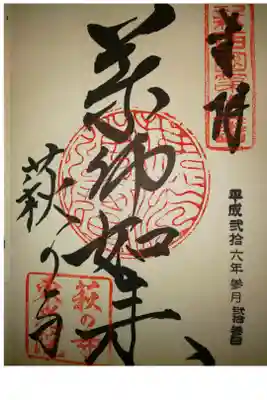 奉拝
平成弐拾六年参月
薬師如来
萩の寺
萩の寺
東光院